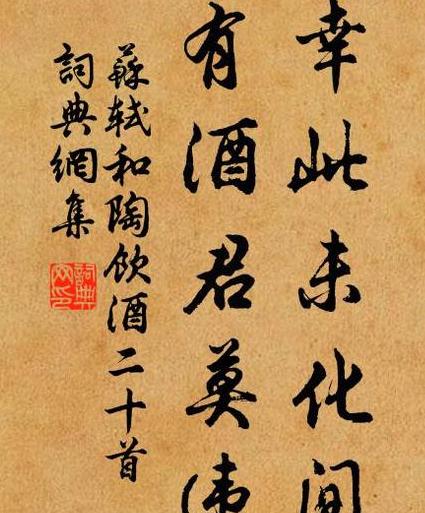 幸此未化間
有酒君莫
蘇軾和陶飲酒二十首
詞典網集
詞典
网印